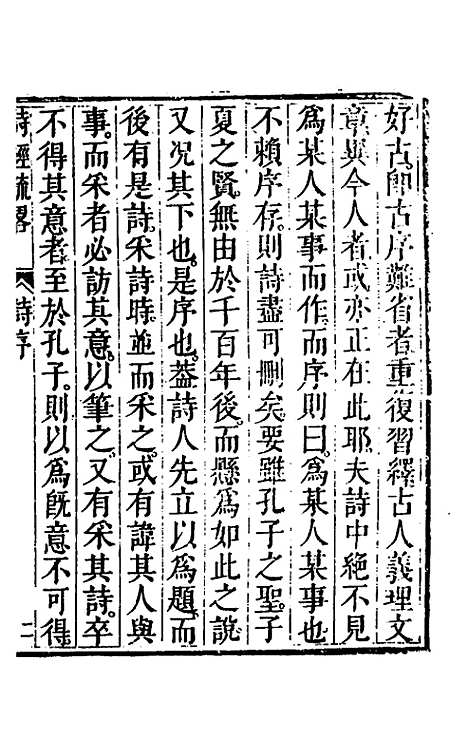 好古卽古序難省者重復習繹古人義理文
章異今人者或亦正在此耶夫詩中絶不見
爲某人某事而作而序則曰爲某人某事也
不賴序存則詩盡可刪矣要雖孔子之聖子
夏之賢無由於千百年後而懸爲如此之說
又況其下也是序也葢詩人先立以爲題而
後有是詩采詩時並而采之或有諱其人與
事而采者必訪其意以筆之又有采其詩卒
不得其意者至於孔子則以爲旣意不可得
詩經疏畧 詩序 二